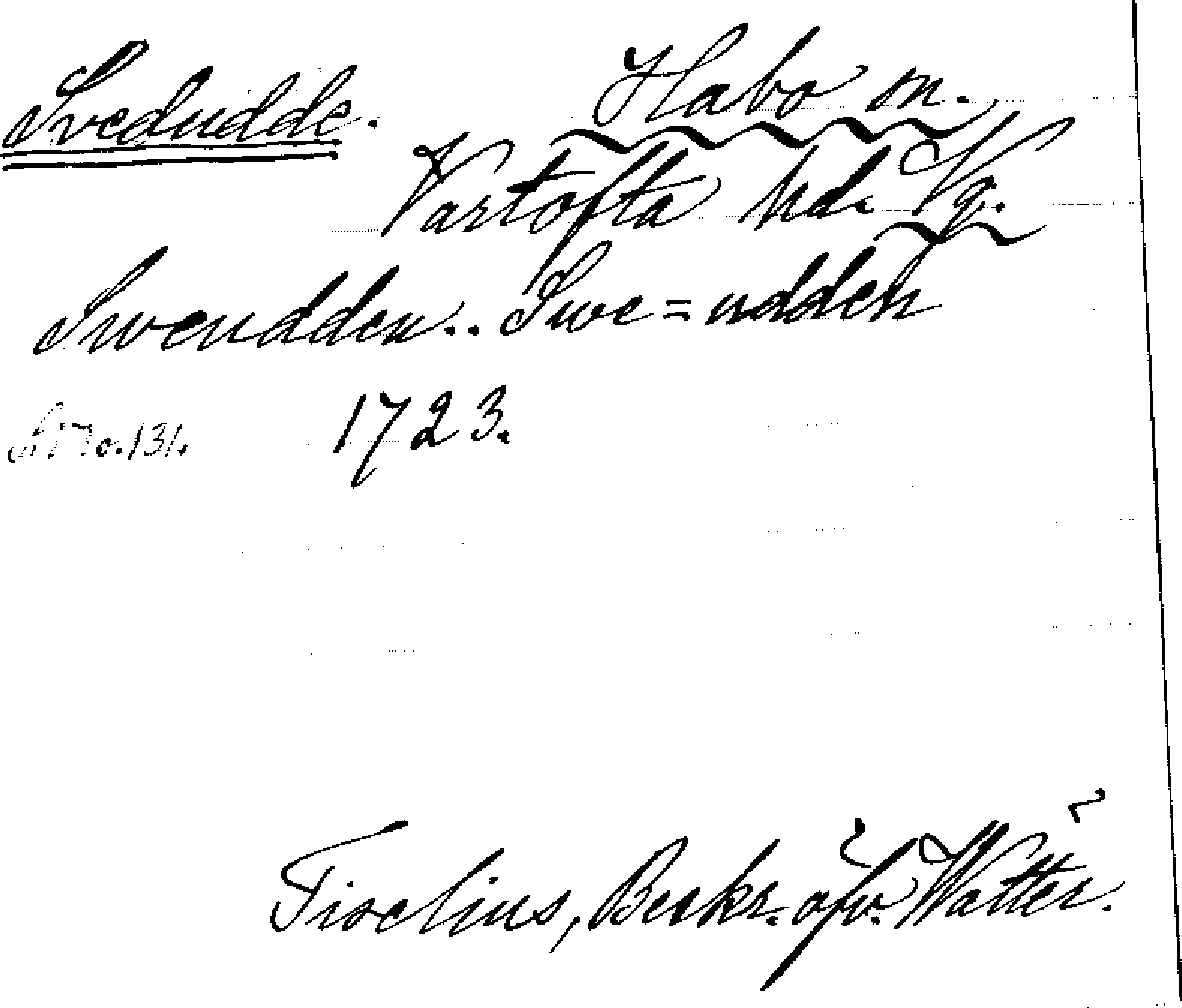 Svedudde. Habo sn.
Vartofta hd. Vg.
Sweudden.. Swe=udden
1723.
Tiselius, Beskr. öfv. Wätter.